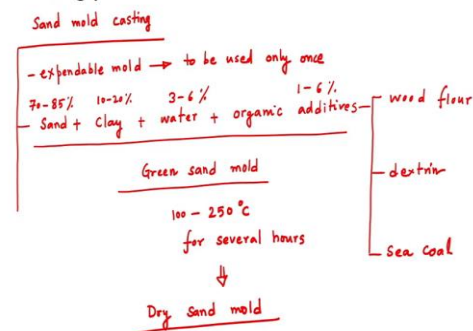 Sand mold casting
- expendable mold → to be used only once
70-85% 10-20% 3-6% 1-6%
Sand + Clay + water + organic additives
wood flour
dextrin
Sea coal
Green sand mold
100 - 250 °C
for several hours
⇓
Dry sand mold